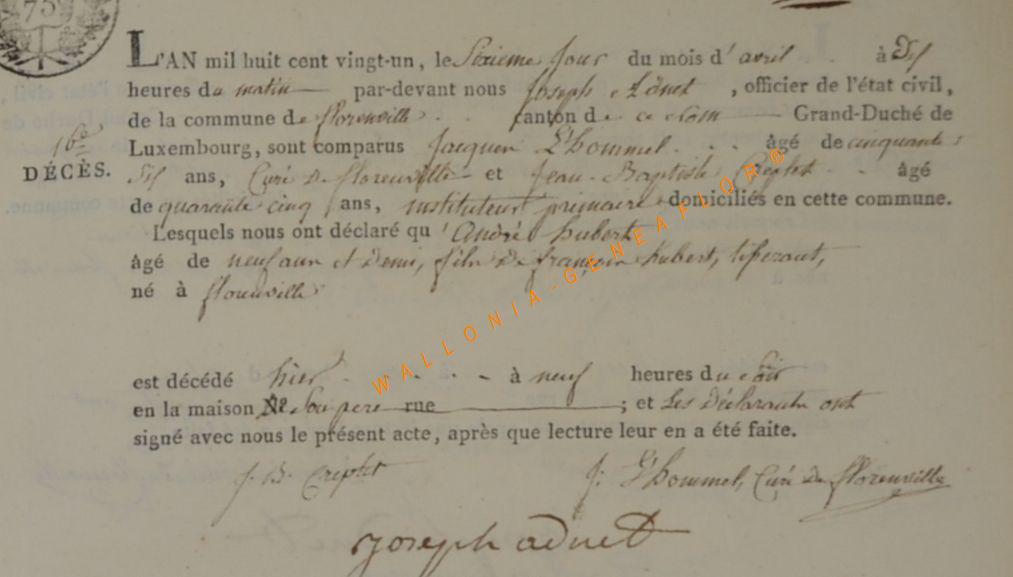 75
L'AN mil huit cent vingt-un, le Sixieme Jour du mois d'avril à Six
heures du matin par-devant nous Joseph Adnet, officier de l'état civil,
de la commune de florenville canton de ce Nom Grand-Duché de
16e
DÉCÈS.
Luxembourg, sont comparus Jacques L'hommel âgé de cinquante
Six ans, Curé De florenville et Jean-Baptiste Creplet âgé
de quarante cinq ans, instituteur primaire domiciliés en cette commune.
Lesquels nous ont déclaré qu'André hubert
âgé de neuf ans et Demi, fils De françois hubert, tisserant,
né à florenville
est décédé hier à neuf heures du Soir
en la maison de Son pere rue ; et Les Déclarants ont
signé avec nous le présent acte, après que lecture leur en a été faite.
J. B. Creplet
J. L'hommel, Curé De florenville
joseph adnet
WALLONIA-GENEAFLOR©